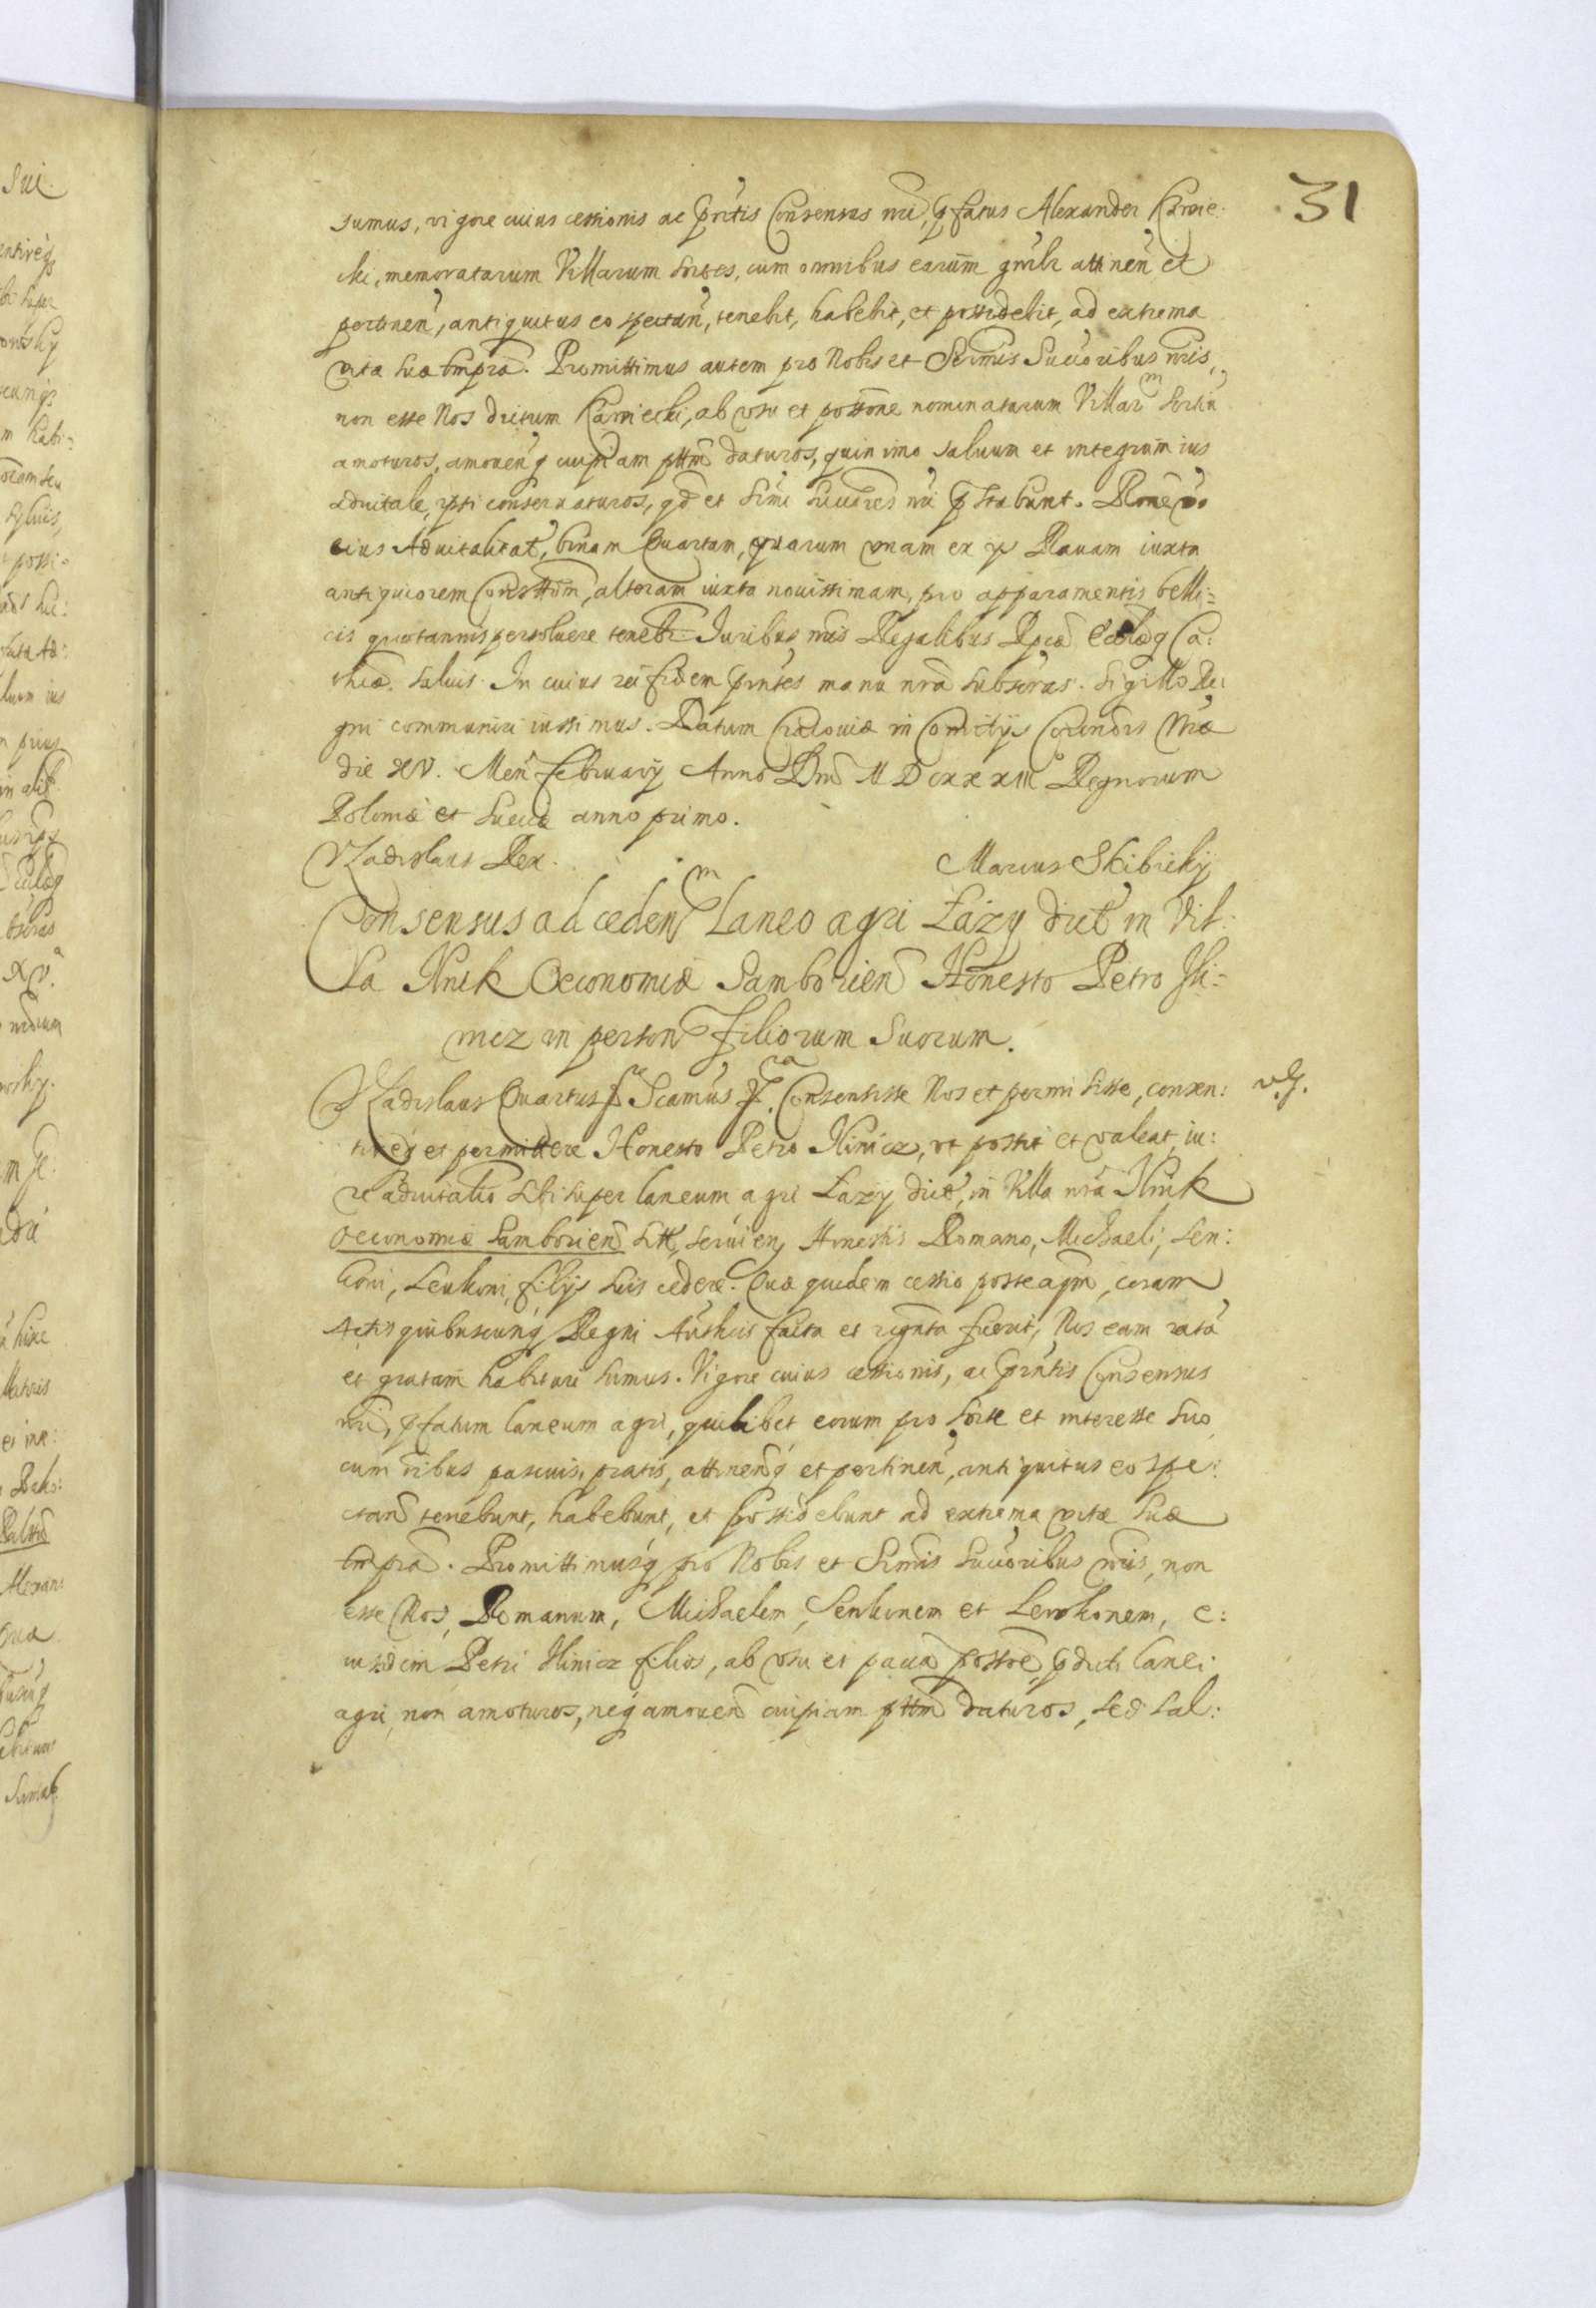 31
sumus, vigore cuius cessionis ac p̃ntis Consensus nr̃i, p̃fatus Alexander Karnie:
cki, memoratarum Villarum sortes, cum omnibus earum gñlr attinen̄ et
pertinen̄, antiquitus eo spectan̄, tenebit, habebit, et possidebit, ad extrema
vitæ suæ tmp̃ra. Promittimus autem pro Nobis et Sermis Succ̃oribus nr̃is,
non esse Nos dictum Karniecki, ab usu et poss̃one nominatarum Villarᵐ sortiu
amoturos, amouen̄q cuipiam p̃ttm daturos, quin imo saluum et integrum ius
aduitale, ipsi conseruaturos, qd et Sermi Succ̃ores nr̃i p̃stabunt. R̃one vo
eius Aduitalitat̄, binam Quartam, quarum vnam ex p Rauam iuxta
antiquiorem Const̃tum, alteram iuxta nouissimam, pro apparamentis belli:
cis quotannis persoluere teneb̃r. Iuribus nr̃is Regalibus Rpcæ Eccl̃æq Ca:
thcæ saluis. In cuius rei fidem p̃ntes manu nr̃a subscras. Sigillo Re:
gni communiri iussimus. Datum Cracouiæ in Comitijs Coron̄ōis Nr̃æ
die XV. Men̄ February Anno Dm̄ MDCXXXIII Regnorum
Poloniæ et Sueciæ anno primo.
Vladislaus Rex. Marcus Skibicky
Consensus ad cedenᵐ Laneo agri Łazy dict̄ in Vil:
la Ilnik Oeconomiæ Samborien̄ Honesto Petro Ili:
nicz in person̄ Filiorum Suorum.
Vladislaus Quartus &c Sc̃amus &c. Qa Consensisse Nos et permisisse, consen: vG.
tireq et permittere Honesto Petro Ilinicz, vt possit et valeat, iu:
re aduitalio sibi super laneum agri Łazy dict̄, in Villa nr̃a Ilnik
Oeconomiæ Samborien̄ sitt, seruien̄, Honestis Romano, Michaeli, Sen:
koni, Lewkoni, filijs suis cedere. Quæ quidem cessio posteaqm, coram
Actis quibuscunq Regni Authcis facta et recgnta fuerit, Nos eam ratã
et gratam habituri sumus. Vigore cuius cessionis, ac p̃ntis Consensus
nr̃i, p̃fatum laneum agri, quilibet eorum pro sorte et interesse suo
cum ribus pascuis, pratis, attinen̄q et pertinen̄, antiquitus eo spe:
ctan̄ tenebunt, habebunt, et possidebunt ad extrema vitæ suæ
tmp̃ra. Promittimusq pro Nobis et Sermis Succ̃oribus nr̃is, non
esse Nos, Romanum, Michaelem, Senkonem et Lewkonem, e:
iusdem Petri Ilinicz filios, ab usu et paca poss̃one, p̃dicti lanei
agri, non amoturos, neq amouen̄ cuipiam p̃ttm daturos, sed sal: